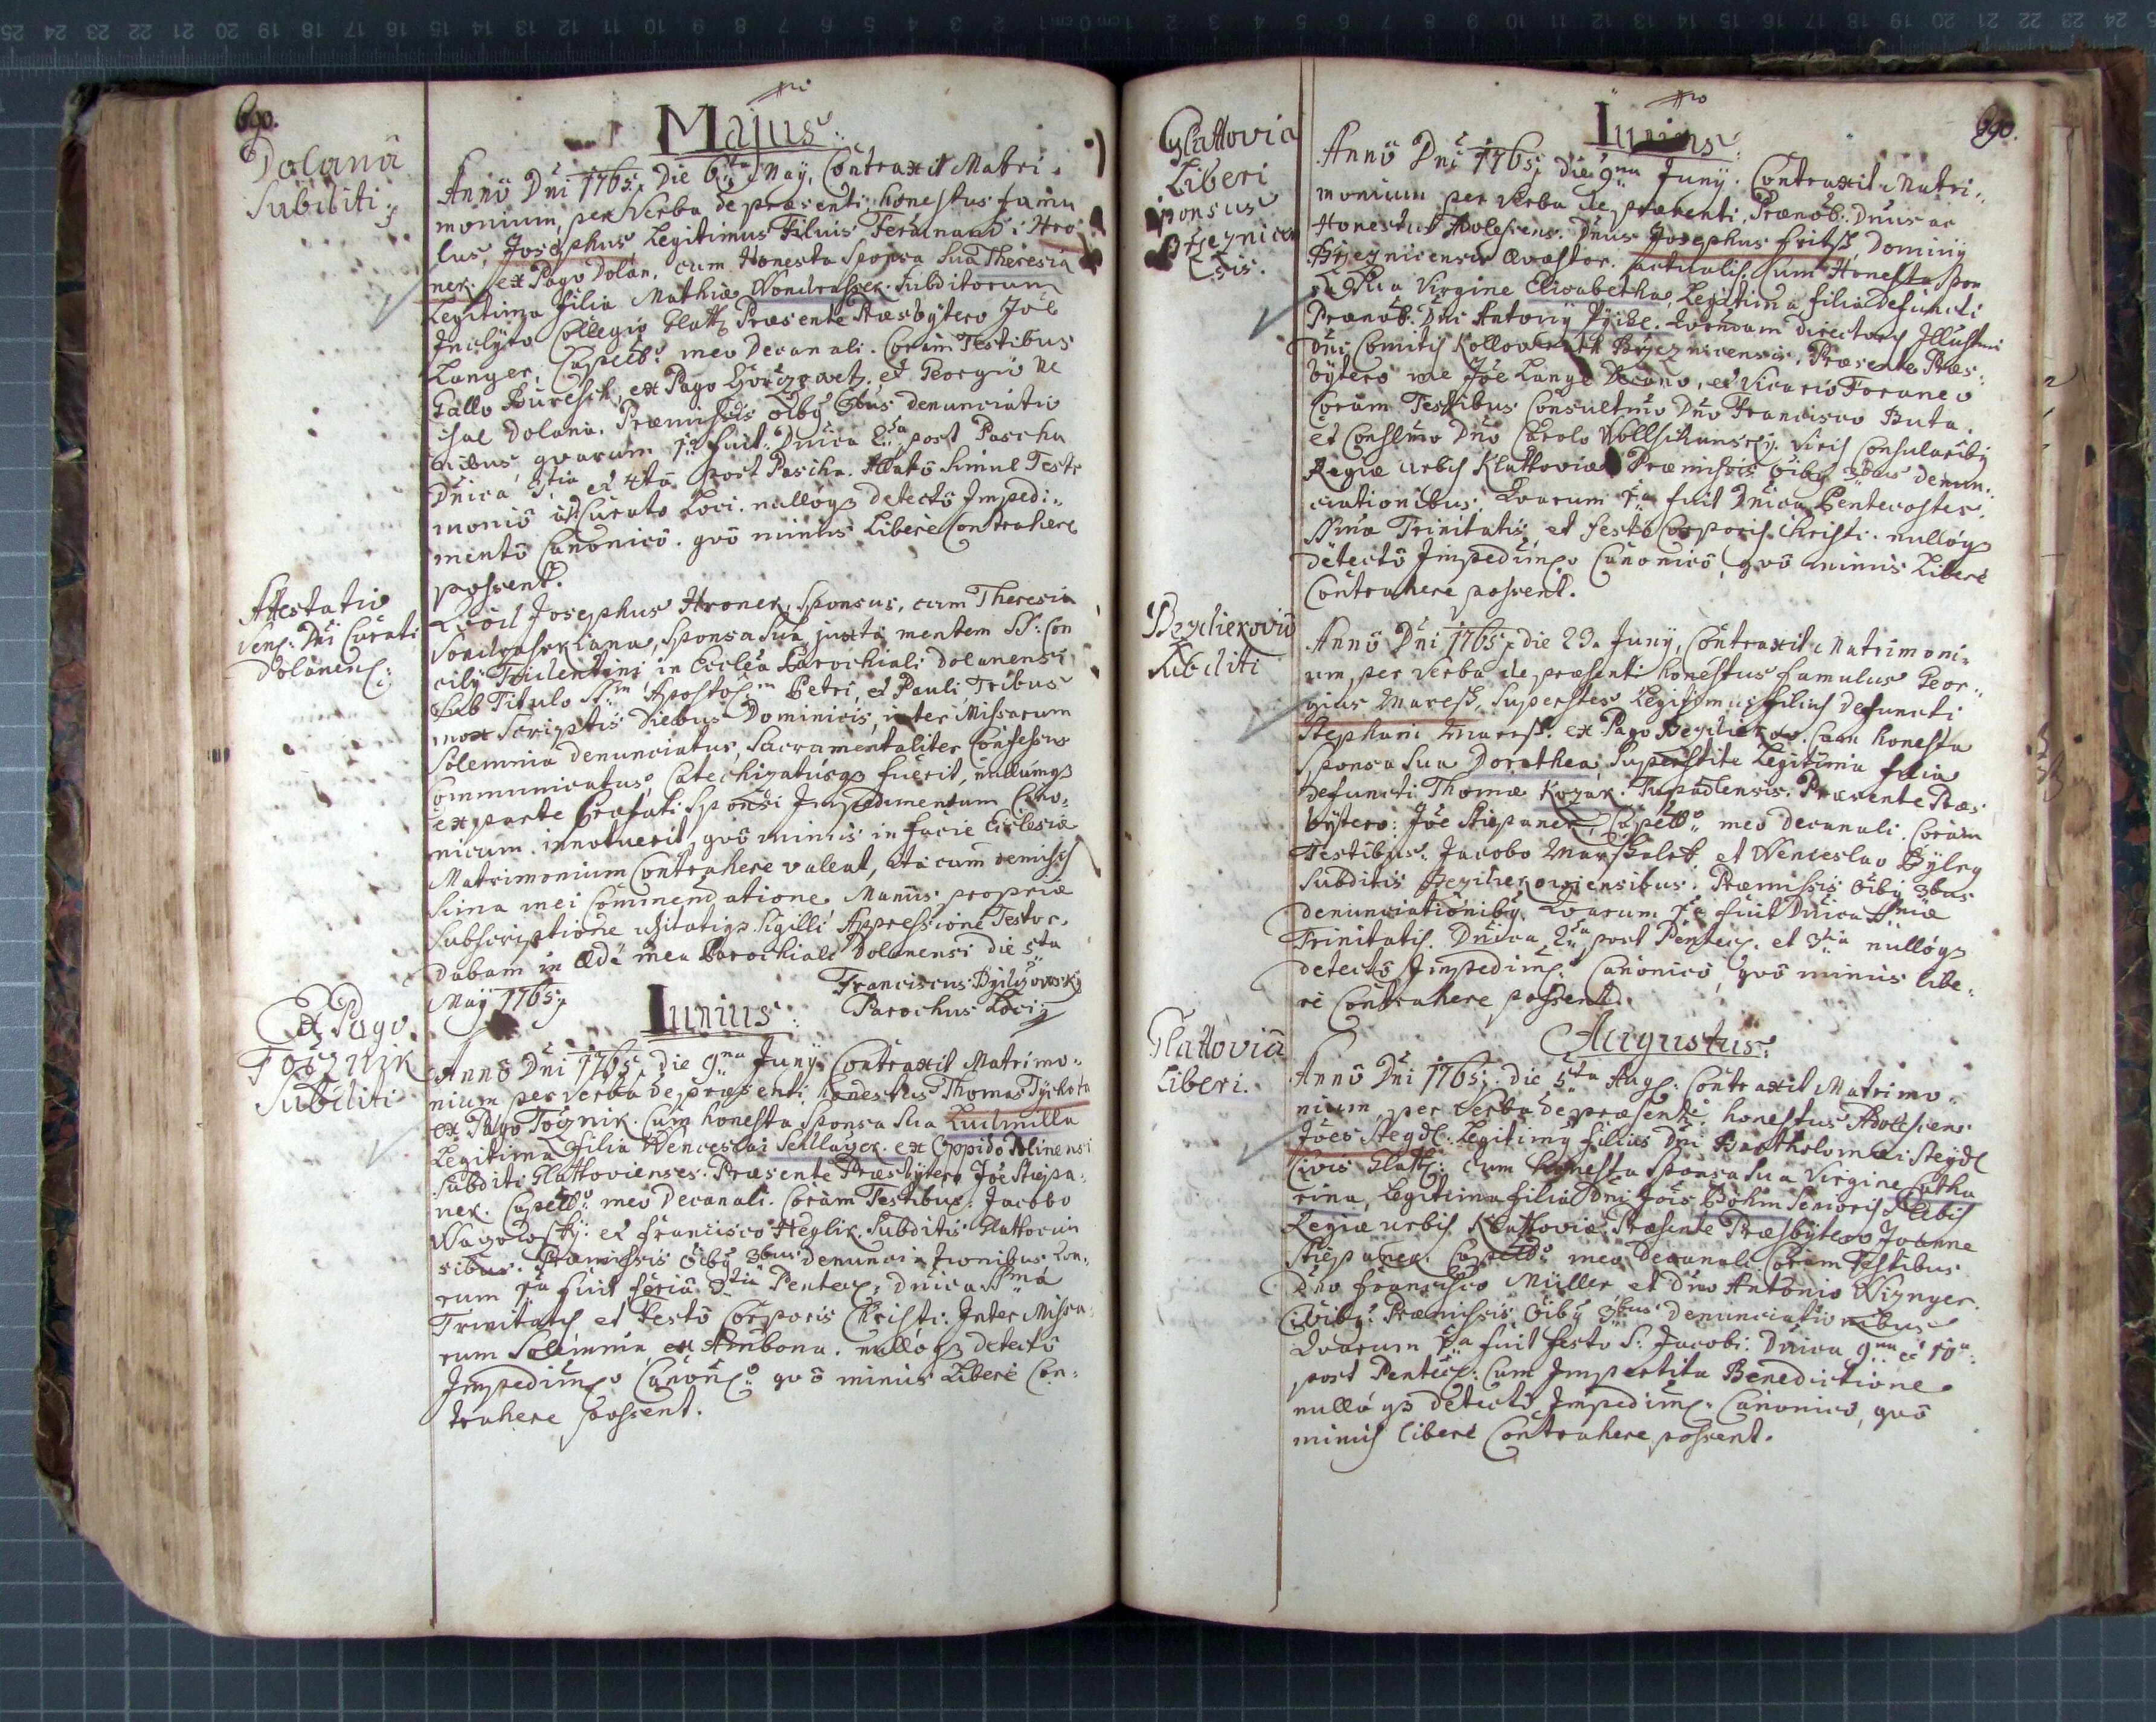 690.
Majus
Dolanâ
Subditi
Annô Dni 1765. Die 6ta May, Contraxit Matri-
monium, per Verba de præsenti honestus famu
lus, Josephus, Legitimus Filius Ferdinandi Hro
nek. ex Pago Dolan. cum Honesta Sponsa Sua Theresia
Legitima Filia Mathiæ Wondrassek. Subditorum
Inclyto Collegio Glatt: Præsente Præsbytero Joe
Langer, Capell: meo Decanali. Coram Testibus
Gallo Buresch, ex Pago et Georgio
Dolana. Præmissis oiby 3bus denunciatio
nibus, qvarum 1a fuit Dnica 2da post Pascha
Dnica 3tia et 4ta post Pascha. Simul Testi
moniô Curato Loci. nullóq3 detectô Impedi-
mentô Canonicô. qvô minus Liberè Contrahere
possent.
Attestatio
Dni Curati
Dolanens:
Qvód Josephus Hronek, Sponsus, cum Theresia
Wondrassekiana, Sponsa Sua, juxta mentem SS: Con
cilij Tridentini in Ecclia Parochiali Dolanensi
Sub Titulo SSm Apostol: Petri, et Pauli Tribus
mox Scriptis Diebus Dominicis, inter Missarum
Solemnia denunciatus, Sacramentaliter Confessus
Communicatus, Catechizatúsq3 fuerit, nullumq3
ex parte Præfati Sponsi Impedimentum Cano-
nicum innotuerit, qvô minus in facie Ecclesiæ
Matrimonium Contrahere valeat, ita cum
Sima mei Commendatione. Manûs propriæ
Subscriptione usitatiq3 Sigilli Appressione Testor.
Dabam in Ædè mea Parochiali Dolanensi die 5ta
May 1765.
Franciscus
Parochus Loci
Junius
Ex Pago
Točznik
Subditi
Annô Dni 1765. Die 9na Junij Contraxit Matrimo-
nium per verba de præsenti honestus Thomas Tychota
ex Pago Točznik. Cum honesta Sponsa Sua Ludmilla
Legitima Filia Wenceslai Sekllayer. ex Oppido
Subditi Glattovienses. Præsente Præsbytero Joe Stiepa-
nek. Capell: meo Decanali. Coram Testibus. Jacobo
et Francisco Heglik. Subditis Glattovien
sibus. Præmissis oiby 3bus denunciationibus Qva-
rum 1a fuit feriâ 3tia Pentec: Dnica SSmâ
Trinitatis et Festô Corporis Christi: Inter Missa-
rum Solemnia, ex Ambona. nullóq3 detectô
Impedim: Canon: qvô minus Liberè Con-
trahere possent.
690.
Junius
Glattovia
Liberi
Sponsus
Annô Dni 1765. die 9na Junij. Contraxit Matri-
monium per Verba de præsenti. Prænob: Dnus ac
Honestus Adolescens. Dnus Josephus Fritsch, Dominij
Qvæstor. actualis. Cum Honesta Spon
sa Sua Virgine Elisabetha, Legitima filia defuncti
Prænob: Dni Antonij Qvondam Directoris Illustrmi
Dni Comitis Kollowrath Præsente Præs-
bytero me Joe Lange Decano, et Vicario Foraneo
Coram Testibus Consultmo Dno Francisco Buta.
et Conslmo Dno Carolo Viris Consularibus
Regiæ urbis Klattoviæ Præmissis oiby 3bus denun-
ciationibus. Qvarum 1a fuit Dnica Pentecostes.
SSmæ Trinitatis, et festô Corporis Christi. nullóq3
detectô Impedim: Canonicô, qvô minus Liberè
Contrahere possent.
Subditi
Annô Dni 1765. die 23a Junij, Contraxit Matrimoni-
um, per Verba de præsenti honestus famulus Geor-
gius Maress, Superstes Legitimus filius defuncti
Stephani Maress. ex Pago Cum honesta
Sponsa Sua Dorothea, Superstite Legitima filia
defuncti Thomæ Kozak. Tupadlensis. Præsente Præs
bytero: Joe Stiepanek, Capell: meo decanali. Coram
Testibus. Jacobo Marssalek, et Wenceslao
Subditis Præmissis oiby 3bus
denunciationiby. Qvarum 1a fuit Dnica SSmæ
Trinitatis. Dnica 2da post Pentec: et 3tia nullóq3
detectô Impedim: Canonicô, qvô minus libe-
rè Contrahere possent.
Augustus
Glattoviâ
Liberi.
Annô Dni 1765. die 5ta Aug: Contraxit Matrimo-
nium, per Verba de præsenti: honestus Adolescens
Joes Stegdl: Legitimy filius Dni Bartholomæi Stegdl
Civis Glatt: cum honesta Sponsa Sua Virgine Catha
rina, Legitima filia Dni Jois Böhm Senioris
Regiæ urbis Klattoviæ. Præsente Præsbytero Joanne
Stiepanek. Capell: meo Decanali Coram Testibus
Dno Francisco Müller et Dno Antonio Wiznyer.
Civiby: Præmissis oiby 3bus Denunciationibus
Qvarum 1a fuit festo S: Jacobi: Dnica 9na et 10a
post Pentec: Cum Impertita Benedictione
nullóq3 detectô Impedim: Canonicô, qvô
minus liberè Contrahere possent.